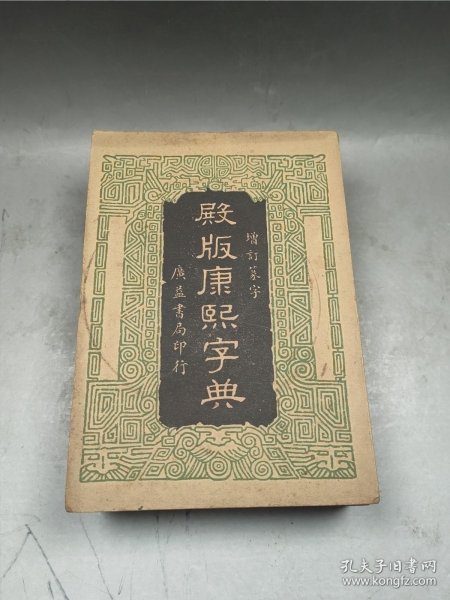 增訂篆字
殿版康熙字典
廣益書局印行
孔夫子旧书网
www.kongfz.com